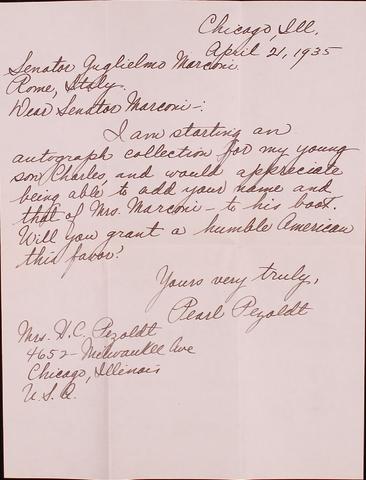 Chicago, Ill.
April 21, 1935
Senator Guglielmo Marconi
Rome, Italy.
Dear Senator Marconi-:
I am starting an
autograph collection for my young
son Charles, and would appreciate
being able to add your name and
that of Mrs. Marconi - to his book.
Will you grant a humble American
this favor?
Yours very truly,
Pearl Pezoldt
Mrs. H.C. Pezoldt
4652 - Milwaukee Ave
Chicago, Illinois
U.S.A.